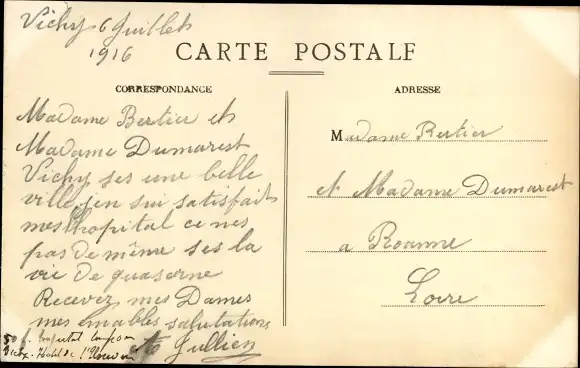 Vichy 6 Juillets
1916
CARTE POSTALE
CORRESPONDANCE
Madame Bertier et
Madame Dumarest
Vichy ses une belle
ville jen sui satisfait
mes l'hopital ce nes
pas de même ses la
vie de quaserne
Recevez mes Dames
mes emables salutations
Jullien
ADRESSE
Madame Bertier
et Madame Dumarest
a Roanne
Loire